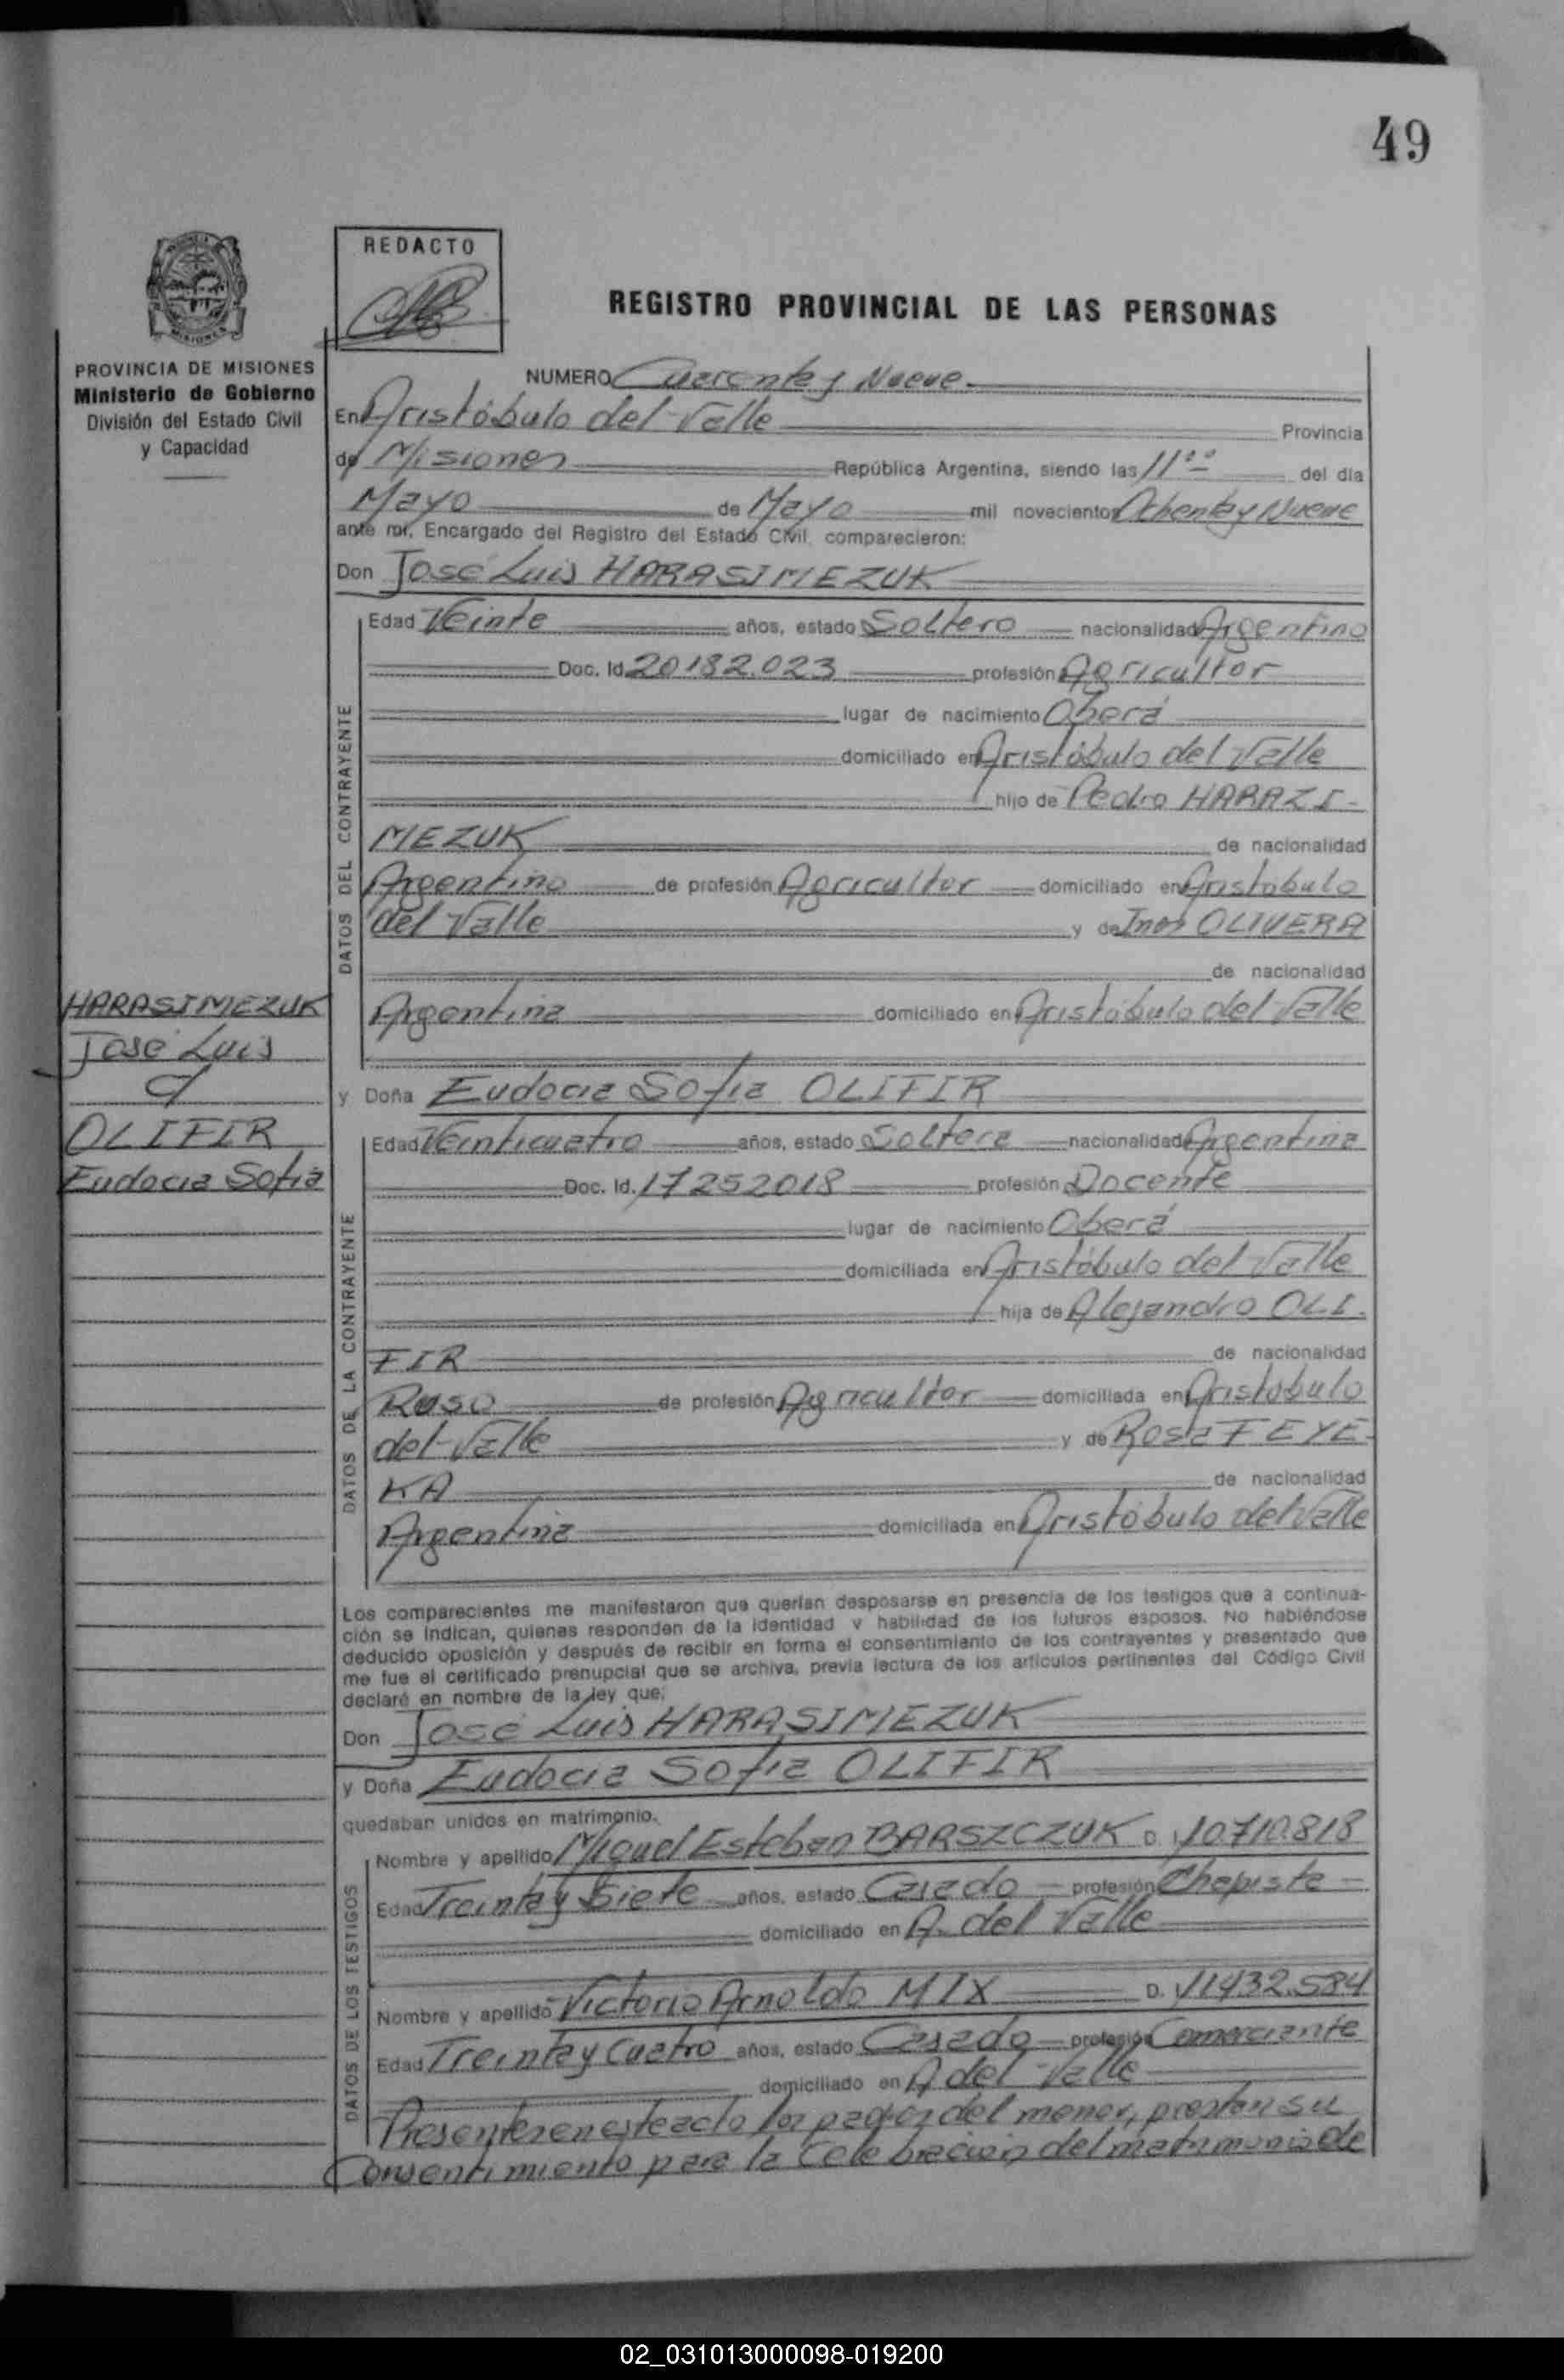 49
REDACTO
REGISTRO PROVINCIAL DE LAS PERSONAS
PROVINCIA DE MISIONES
Ministerio de Gobierno
División del Estado Civil
y Capacidad
NUMERO Cuarenta y Nueve
En Aristóbulo del Valle Provincia
de Misiones República Argentina, siendo las 11°° del día
Mayo de Mayo mil novecientos Ochenta y Nueve
ante mí, Encargado del Registro del Estado Civil comparecieron:
Don José Luis HARASIMEZUK
DATOS DEL CONTRAYENTE
Edad Veinte años, estado Soltero nacionalidad Argentino
Doc. Id. 20182.023 profesión Agricultor
lugar de nacimiento Oberá
domiciliado en Aristóbulo del Valle
hijo de Pedro HARAZI-
MEZUK de nacionalidad
Argentino de profesión Agricultor domiciliado en Aristobulo
del Valle y de Ines OLIVERA
de nacionalidad
Argentina domiciliado en Aristóbulo del Valle
HARASIMEZUK
José Luis
c/
OLIFIR
Eudocia Sofia
y Doña Eudocia Sofia OLIFIR
DATOS DE LA CONTRAYENTE
Edad Veinticuatro años, estado Soltera nacionalidad Argentina
Doc. Id. 17252018 profesión Docente
lugar de nacimiento Oberá
domiciliada en Aristóbulo del Valle
hija de Alejandro OLI-
FIR de nacionalidad
Ruso de profesión Agricultor domiciliada en Aristobulo
del Valle y de Rosa FEYE-
KA de nacionalidad
Argentina domiciliada en Aristóbulo del Valle
Los comparecientes me manifestaron que querían desposarse en presencia de los testigos que a continua-
ción se indican, quienes responden de la identidad y habilidad de los futuros esposos. No habiéndose
deducido oposición y después de recibir en forma el consentimiento de los contrayentes y presentado que
me fue el certificado prenupcial que se archiva, previa lectura de los artículos pertinentes del Código Civil
declaré en nombre de la ley que:
Don José Luis HARASIMEZUK
y Doña Eudocia Sofia OLIFIR
quedaban unidos en matrimonio.
DATOS DE LOS TESTIGOS
Nombre y apellido Miguel Esteban BARSZCZUK D. I. 10.710.818
Edad Treinta y Siete años, estado Casado profesión Chapista
domiciliado en A. del Valle
Nombre y apellido Victorio Arnoldo MIX D. I. 11432.584
Edad Treinta y Cuatro años, estado Casado profesión Comerciante
domiciliado en A del Valle
Presentes en este acto los padres del menor, prestan su
Consentimiento para la Celebracion del matrimonio de
02_031013000098-019200